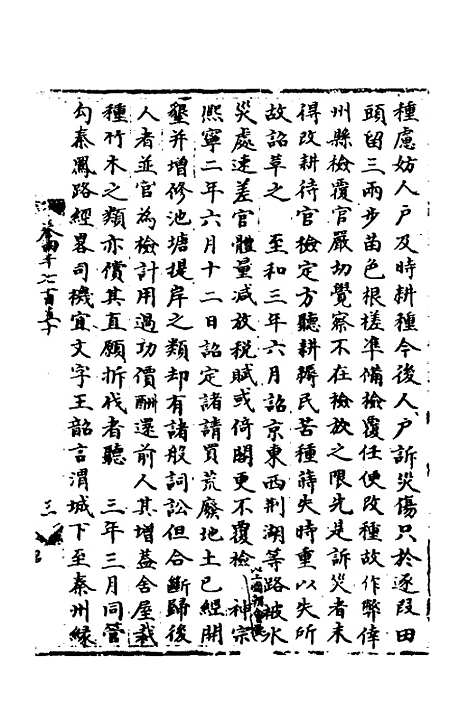 種慮妨人戶及時耕種今後人戶訴災傷只於逐段田
頭留三兩步苗色根槎凖備檢覆任便改種故作弊倖
州縣檢覆官嚴切覺察不在檢放之限先是訴災者未
得改耕待官檢定方聽耕耨民苦種蒔失時重以失所
故詔草之　至和三年六月詔京東西荆湖等路被水
災處速差官體量減放税賦或倚閣更不覆檢　以上國朝會要　神宗
熈寧二年六月十二日詔定諸請買荒廢地土已經開
墾并增修池塘提岸之類却有諸般詞訟但合斷歸後
人者並官為檢計用過功價酬還前人其增葢舍屋栽
種竹木之類亦償其直願折伐者聽　三年三月同管
勾秦鳳路經畧司機宜文字王韶言渭城下至秦州緣
三